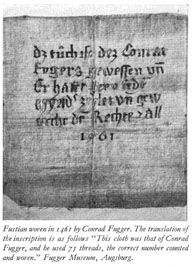 dz tůch ist dez Conrat
Fugers gewessen vñ
Er hatt
vñ gew
recht der Rechte zall
1461
Fustian woven in 1461 by Conrad Fugger. The translation
of the inscription is as follows "This cloth was that of Conrad
Fugger, and he used 73 threads, the correct number counted
and woven." Fugger Museum, Augsburg.